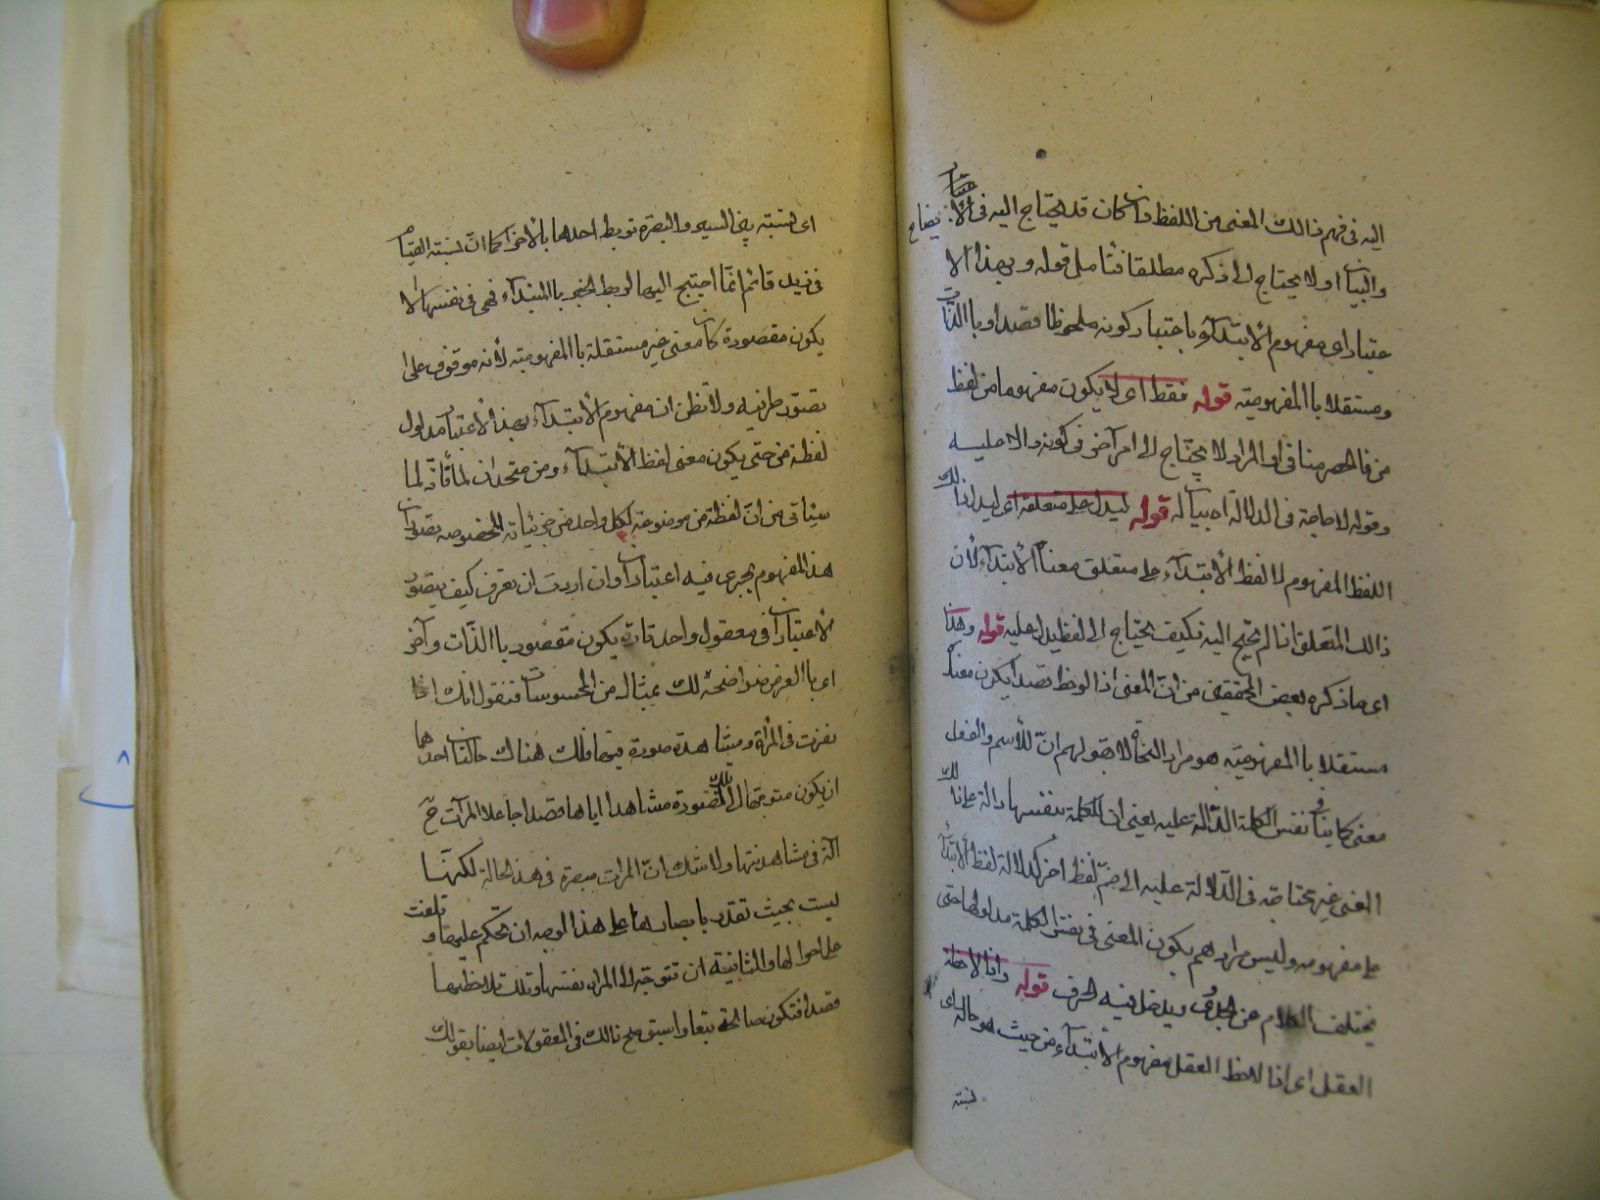 اليه فى فهم ذالك المعنى من اللفظ وان كان قد يحتاج اليه فى الايضاح
والبيان اولا يحتاج الى ذكره مطلقا فتأمل قوله وبهذا الا
عتبار اى مفهوم الأبتدآء باعتبار كونه ملحوظا قصدا وباالذات
ومستقلا باالمفهومية قوله فقط اى لا يكون مفهوما من لفظ
من فالحصر منافى او المراد لا يحتاج الى امر آخر فى كونه والا عليه
وقوله لا حاجة فى الدلالة اه بيان له قوله ليدل على متعلقه اى ليدل ذالك
اللفظ المفهوم لا لفظ الأبتدآء على متعلق معناه الأبتدآء لأن
ذالك المتعلق اذا لم يحتج اليه فكيف يحتاج الى لفظ يدل عليه قوله وهذا
اى ما ذكره بعض المحققين من انّ المعنى اذا لوحظ قصدا يكون معنى
مستقلا باالمفهومية هو مراد النحاة لا بقولهم انّ للأسم والفعل
معنى كاينا فى نفس الكلمة الدّالة عليه يعنى ان الكلمة بنفسها دالة على ذالك
المعنى غير محتاجة فى الدّلالة عليه الى ضمّ لفظ اخر كدلالة لفظ الأبتدآء
على مفهومه وليس مرادهم بكون المعنى فى نفس الكلمة مدلولها حتى
يختلف الكلام عن ويدخل فيه الحرف قوله واذا لاحظه
العقل اى اذا لاحظ العقل مفهوم الأبتدآء من حيث هو حالة اى
نسبته
اى نسبته بين السير والبصرة توبط احدها بالأخر كما انّ نسبته القيام
فى زيد قائم انمّا احتيج اليها لربط الخبر باالمبتدآء فهى فى نفسها لا
يكون مقصودة كان معنى غير مستقلة باالمفهومية لأنه موقوف على
تصوّر طرفيه ولا تظن ان مفهوم الأبتدآء بهذا الأعتبار مدلول
لفظة من حتى يكون معنى لفظ الأبتدآء ومن متحدان لما
سيأتى من انّ لفظة من موضوعة لكل واحد من جزئياته المخصوصه بصدق
هذا المفهوم يجرى فيه اعتباران وان اردت ان تعرف كيف يتصوّر
الأعتباران فى معقول واحد قارة يكون مقصود باالذّات وآخر
اى باالعرض ضواضحة لك بمثال من المحسوسات فنقول انك اذا
نفرت فى المرأة ومشاهدة صورة فيها فلك هناك حالتان احدهما
ان يكون متوجها الى تلك الصورة مشاهدا اياها قصدا جاعلا المرآت ح
الة فى مشاهدتها ولا شك انّ المرات مبصرة فى هذ الحالة لكنهّا
ليست بحيث تقدر بابصارها على هذا الوجه ان تحكم عليها وتلفت
على احوالها والثانية ان تتوجّه الى المرات نفسها وتلك تلاحظها
قصدا فتكون صالحة واسبق على ذالك فى المعقولات ايضا بقولك